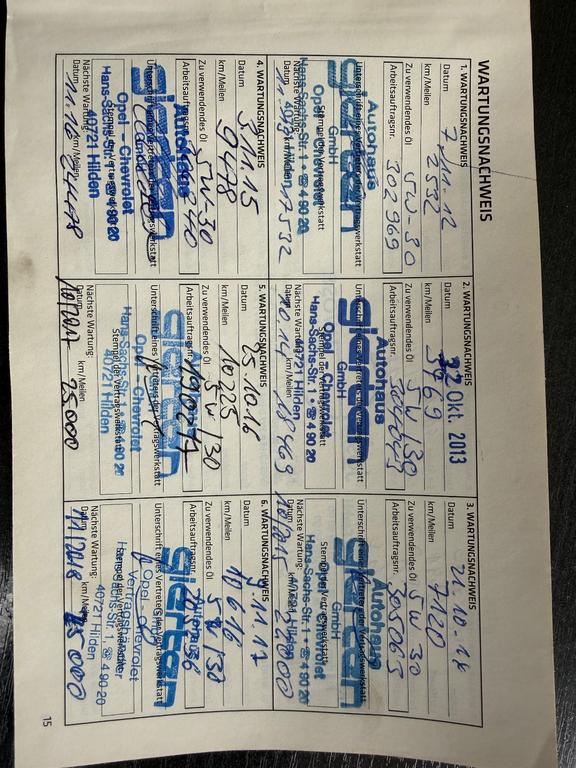 WARTUNGSNACHWEIS
1. WARTUNGSNACHWEIS
Datum 7.11.12
km/Meilen 2532
Zu verwendendes Öl 5W-30
Arbeitsauftragsnr. 302969
Autohaus
gierten
GmbH
Opel Chevrolet
Hans-Sachs-Str. 1 • ☎ 4 90 20
40721 Hilden
Nächste Wartung:
Datum km/Meilen 17532
2. WARTUNGSNACHWEIS
Datum 22. Okt. 2013
km/Meilen 3469
Zu verwendendes Öl 5W/30
Arbeitsauftragsnr. 304049
Autohaus
gierten
GmbH
Opel Chevrolet
Stempel der Vertragswerkstatt
Hans-Sachs-Str. 1 • ☎ 4 90 20
40721 Hilden
Nächste Wartung:
Datum 10.14 km/Meilen 18469
3. WARTUNGSNACHWEIS
Datum 21.10.14
km/Meilen 7120
Zu verwendendes Öl 5W30
Arbeitsauftragsnr. 305063
Autohaus
gierten
GmbH
Opel Chevrolet
Hans-Sachs-Str. 1 • ☎ 4 90 20
40721 Hilden
Nächste Wartung:
Datum 10/2015 km/Meilen
4. WARTUNGSNACHWEIS
Datum 5.11.15
km/Meilen 9478
Zu verwendendes Öl 5W-30
Arbeitsauftragsnr.
Autohaus
gierten
Opel - Chevrolet
Hans-Sachs-Str. 1 • ☎ 4 90 20
40721 Hilden
Nächste Wartung:
Datum 11.16 km/Meilen 24478
5. WARTUNGSNACHWEIS
Datum 25.10.16
km/Meilen 10225
Zu verwendendes Öl 5W/30
Arbeitsauftragsnr.
gierten
Unterschrift eines Vertreters der Vertragswerkstatt
Opel - Chevrolet
Stempel der Vertragswerkstatt
Hans-Sachs-Str. 1 • ☎ 4 90 20
40721 Hilden
Nächste Wartung:
Datum km/Meilen 25000
6. WARTUNGSNACHWEIS
Datum 11.17
km/Meilen 10616
Zu verwendendes Öl 5W/30
Arbeitsauftragsnr.
gierten
Unterschrift eines Vertreters der Vertragswerkstatt
Opel - Chevrolet
Hans-Sachs-Str. 1, ☎ 4 90 20
40721 Hilden
Nächste Wartung:
Datum 11/2018 km/Meilen
15